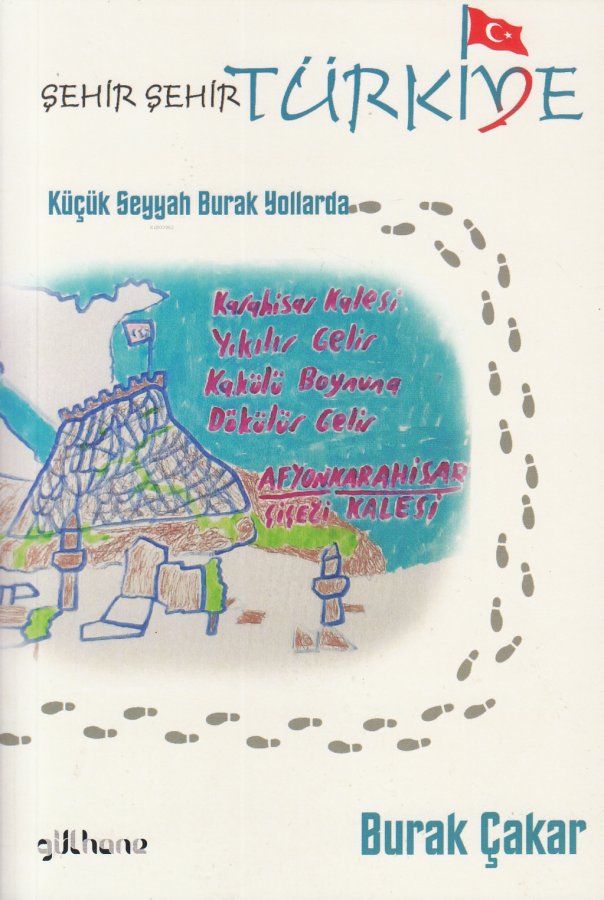 ŞEHİR ŞEHİR TÜRKİYE
Küçük Seyyah Burak Yollarda
Karahisar Kalesi
Yıkılır Gelir
Kakülü Boynuna
Dökülür Gelir
AFYONKARAHİSAR
ÇİÇEĞİ KALESİ
gülhane
Burak Çakar